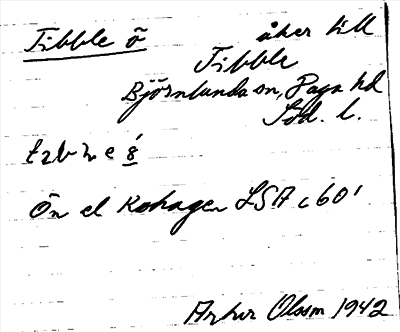 Tibble ö åker till
Tibble
Björnlunda sn, Daga hd
Söd. l.
Ön el Kohagen LSA c 60'
Arthur Olsson 1942